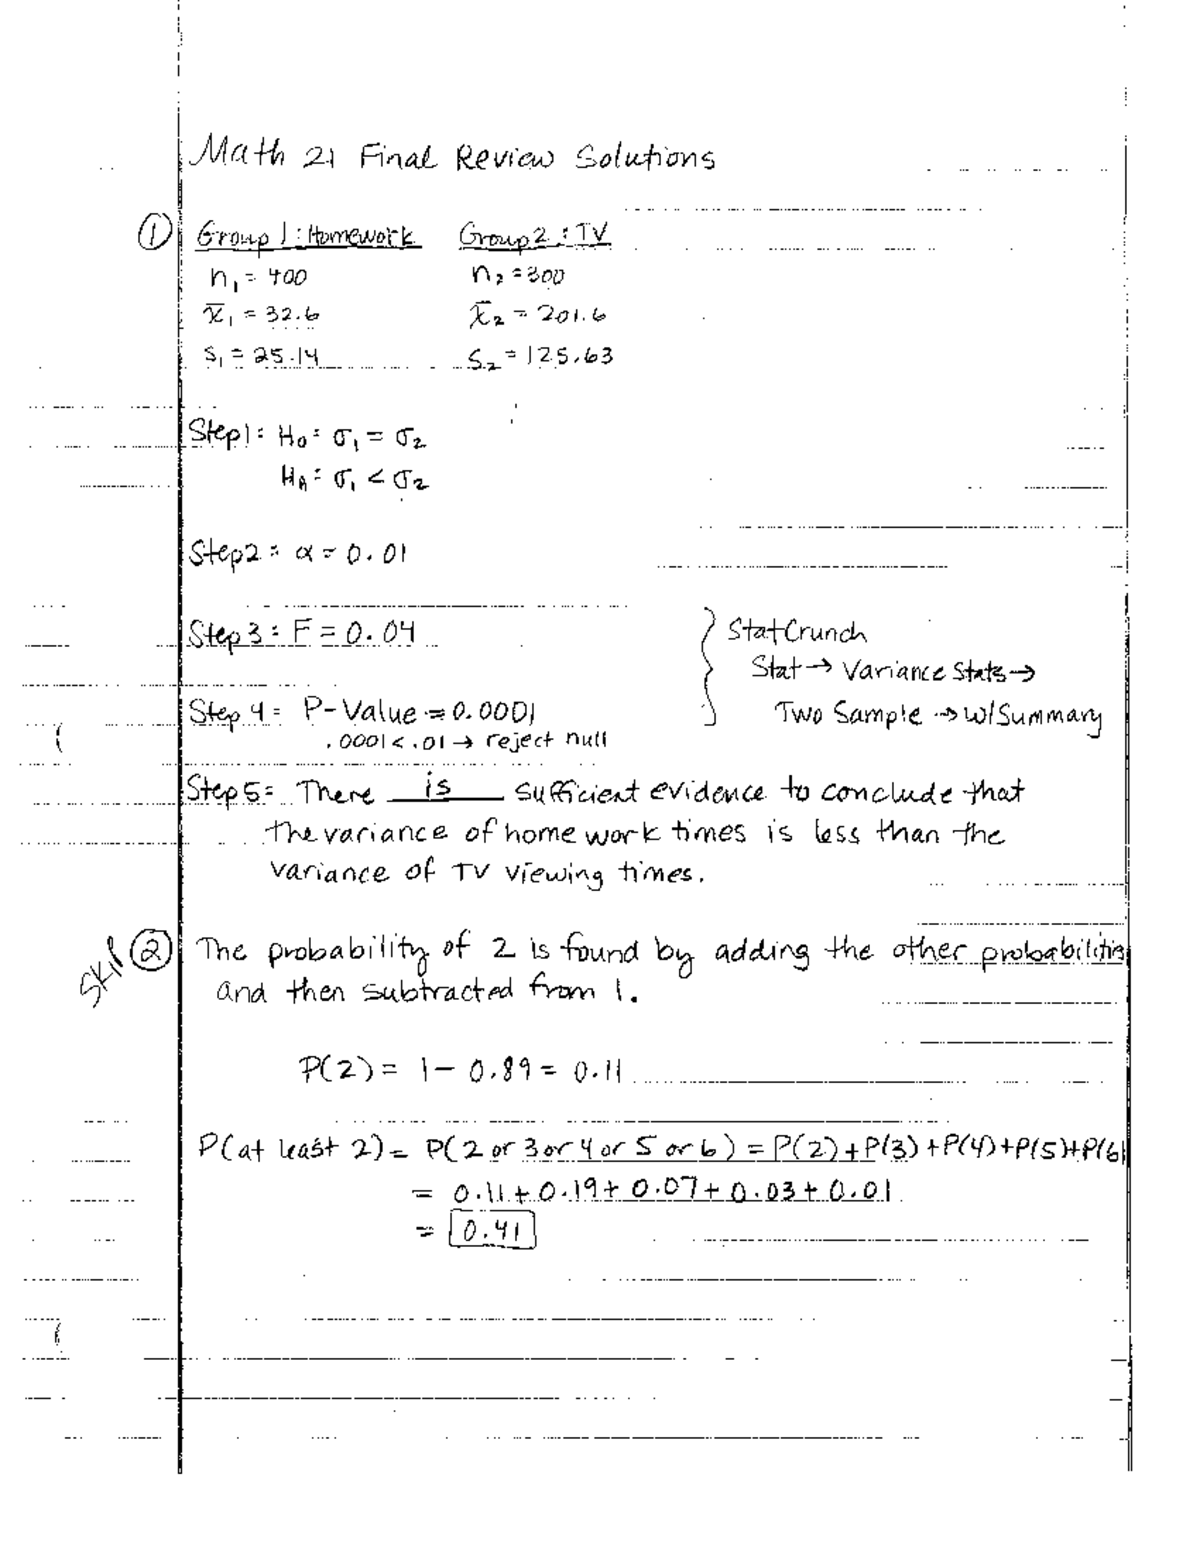 Math 21 Final Review Solutions
① Group 1: Homework Group 2: TV
n₁ = 400 n₂ = 300
x̄₁ = 32.6 x̄₂ = 201.6
s₁ = 25.14 s₂ = 125.63
Step 1: H₀: σ₁ = σ₂
H_A: σ₁ < σ₂
Step 2: α = 0.01
Step 3: F = 0.04 } StatCrunch
Stat → Variance Stats →
Step 4: P-Value = 0.0001 Two Sample → w/Summary
.0001 < .01 → reject null
Step 5: There is sufficient evidence to conclude that
the variance of homework times is less than the
variance of TV viewing times.
Skip ② The probability of 2 is found by adding the other probabilities
and then subtracted from 1.
P(2) = 1 - 0.89 = 0.11
P(at least 2) = P(2 or 3 or 4 or 5 or 6) = P(2) + P(3) + P(4) + P(5) + P(6)
= 0.11 + 0.19 + 0.07 + 0.03 + 0.01
= 0.41